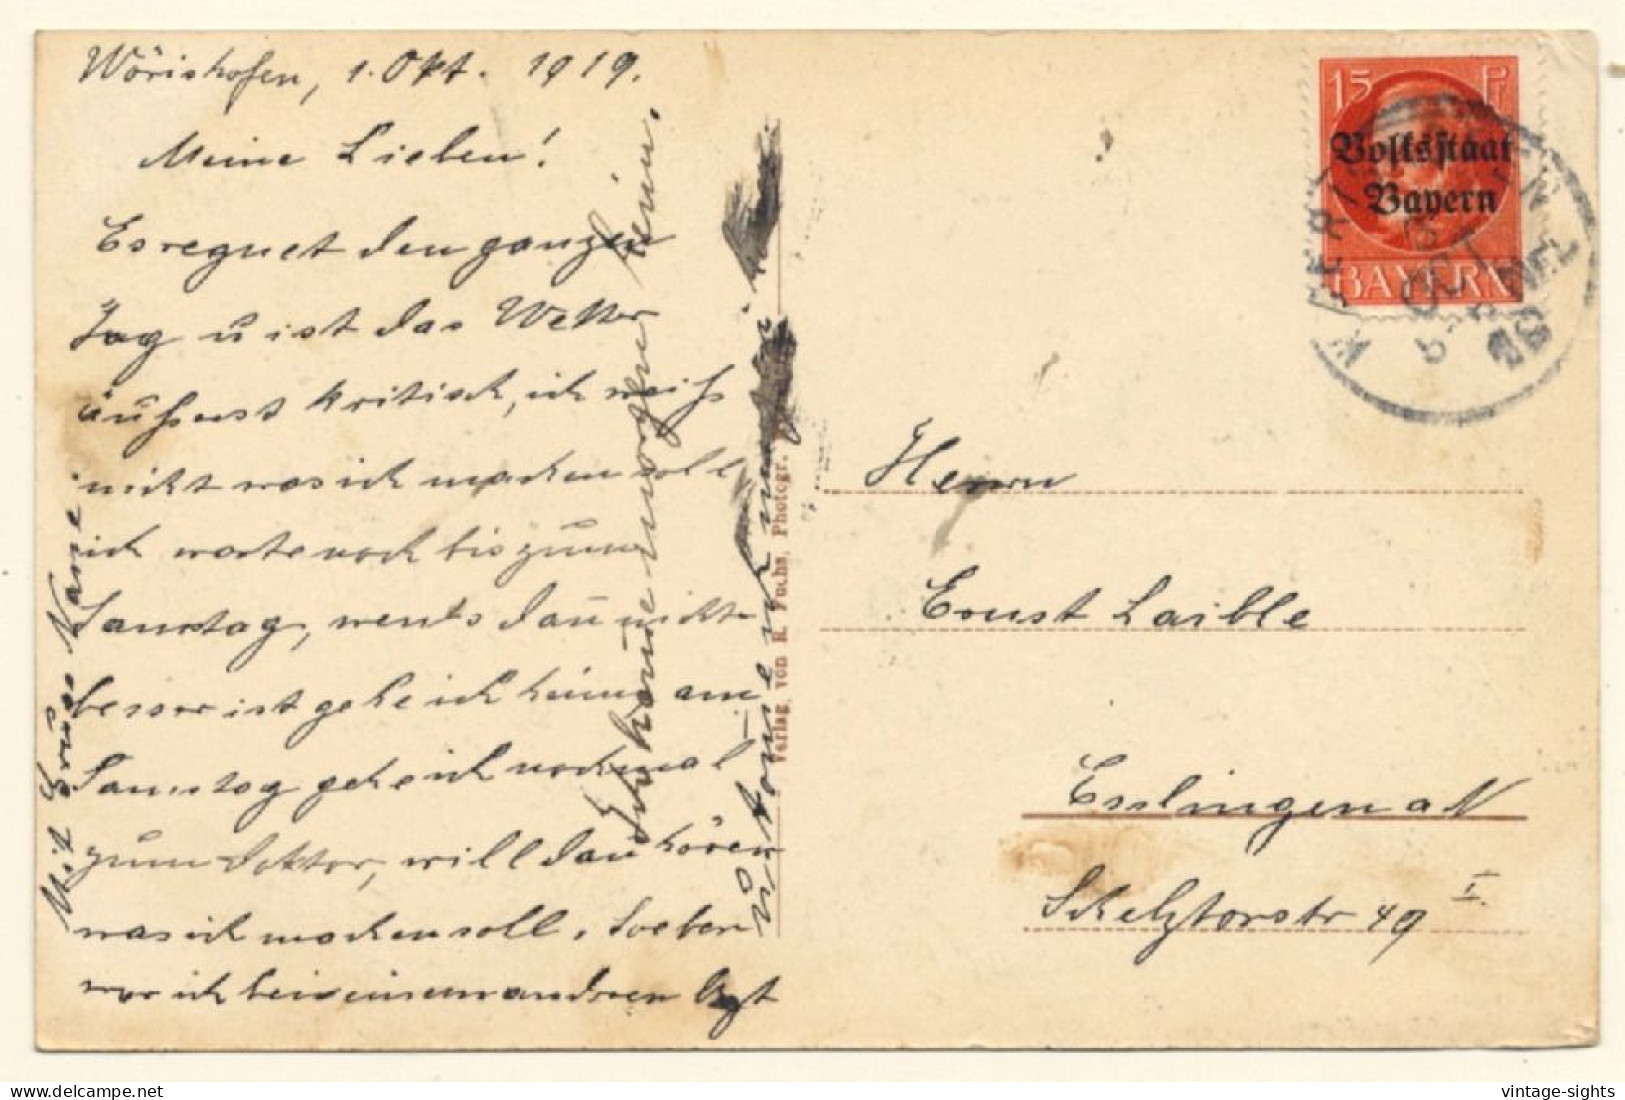 Wörishofen, 1. Okt. 1919.
Meine Lieben!
Es regnet den ganzen
Tag u ist das Wetter
äußerst kritisch, ich weiß
nicht was ich machen soll
ich warte noch bis zum
Samstag, wenns dan nicht
besser ist gehe ich heim, am
Samstag gehe ich nochmal
zum Doktor, will dan hören
was ich machen soll. Soeben
war ich bei einem andren Arzt
u
Ich käme morgen heim.
Mit Gruss Nane
Verlag von H. Fuchs, Photogr.
15 Pf
Volksstaat
Bayern
BAYERN
OKT
Herrn
Ernst Laible
Esslingen a N
Schelztorstr 49 I.
vintage-sights